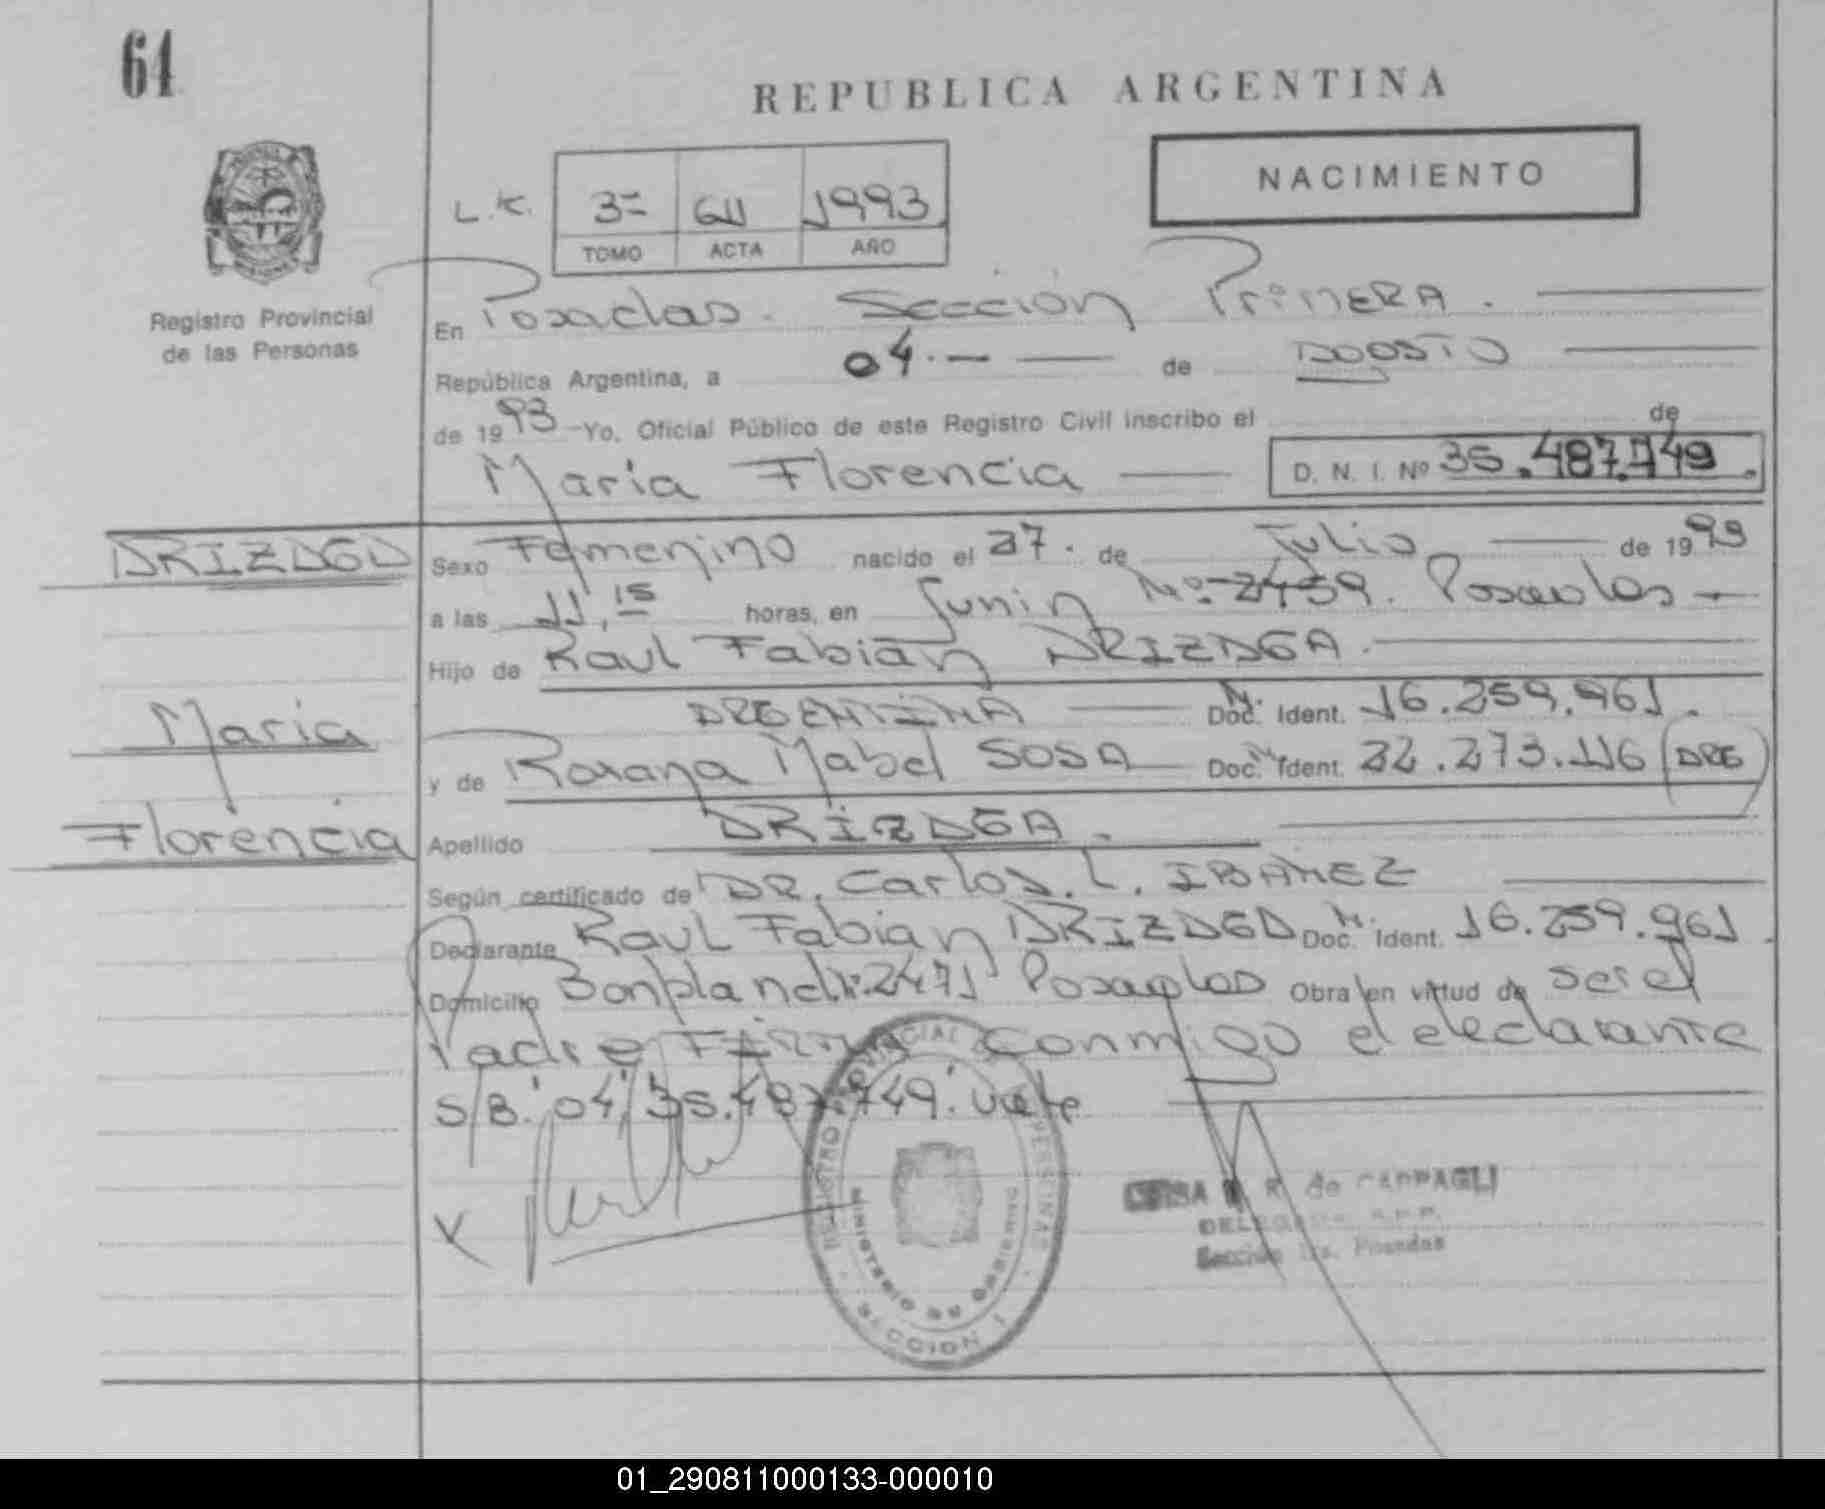 61
REPUBLICA ARGENTINA
NACIMIENTO
L.K. 3= 611 1993
TOMO ACTA AÑO
Registro Provincial
de las Personas
En Posadas. Sección Primera.
República Argentina, a 04.- de Agosto
de 1993 -Yo, Oficial Público de este Registro Civil inscribo el de
María Florencia D. N. I. Nº 35.487.749.
ARIZAGA
Sexo Femenino nacido el 27. de Julio de 1993
a las 11,15 horas, en Junín Nº 2459. Posadas -
Hijo de Raul Fabián ARIZAGA.
ARGENTINA Doc. Ident. M. 16.259.961.
María
y de Rosana Mabel SOSA Doc. Ident. 22.273.116 (ARG)
Florencia
Apellido ARIZAGA.
Según certificado de DR. Carlos. L. IBAÑEZ
Declarante Raul Fabian ARIZAGA Doc. Ident. M. 16.259.961.
Domicilio Bonpland Nº 2471 Posadas Obra en virtud de ser el
Padre Firma conmigo el declarante
S/B. '04', '35.487.749.' Vale
REGISTRO PROVINCIAL DE LAS PERSONAS
MINISTERIO DE GOBIERNO
SECCION I
R. de CARPAGLI
DELEGADA R.P.P.
Sección 1ra. Posadas
X
01_290811000133-000010